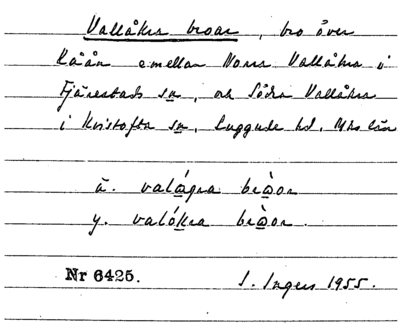 Vallåkra broar, bro över
Råån emellan Norra Vallåkra i
Fjärestads sn, och Södra Vallåkra
i Kvistofta sn, Luggude hd, Mhs län
ä. valágra brå̀or
y. valókra brå̀or.
Nr 6425. I. Ingers 1955.